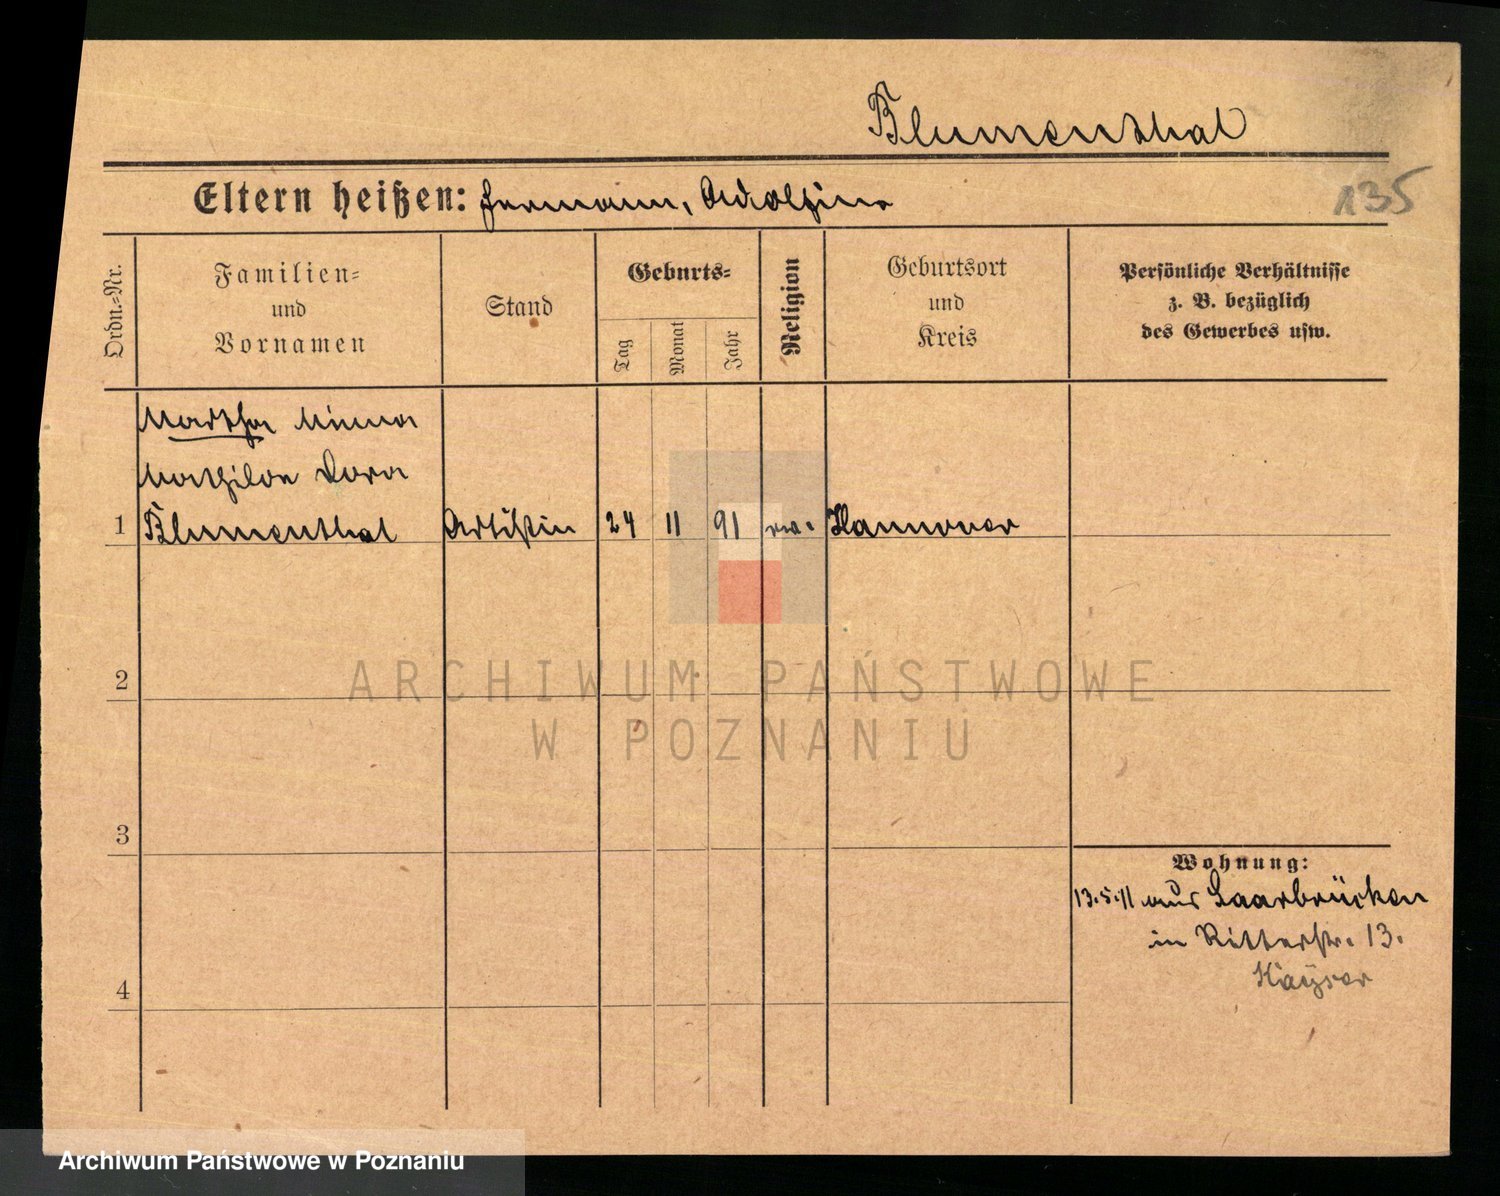 Blumenthal
Eltern heißen: Hermann, Adolfine
135
Ordn.-Nr.
Familien-
und
Vornamen
Stand
Geburts-
Tag
Monat
Jahr
Religion
Geburtsort
und
Kreis
Persönliche Verhältnisse
z. B. bezüglich
des Gewerbes usw.
Martha Minna
Mathilde Dora
1 Blumenthal Artistin 24 11 91 ev. Hannover
2
ARCHIWUM PAŃSTWOWE
W POZNANIU
3
Wohnung:
13.5.11 aus Saarbrücken
in Ritterstr. 13.
Kayser
4
Archiwum Państwowe w Poznaniu